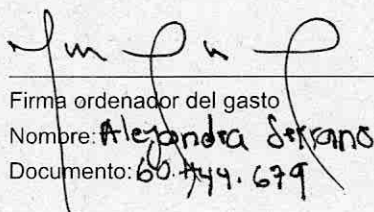 Firma ordenador del gasto
Nombre: Alejandra Serrano
Documento: 60.444.679